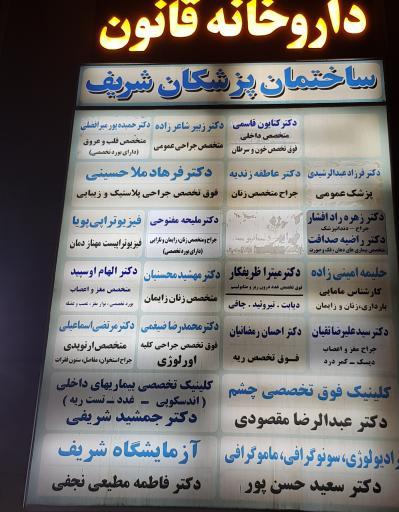 داروخانه قانون
ساختمان پزشکان شریف
دکتر کتایون قاسمی
متخصص داخلی
فوق تخصص خون و سرطان
دکتر زبیر شاعرزاده
متخصص جراحی عمومی
دکتر حمیده پور میرافضلی
متخصص قلب و عروق
(دارای بورد تخصصی)
دکتر فرزاد عبدالرشیدی
پزشک عمومی
دکتر عاطفه زندیه
جراح متخصص زنان
دکتر فرهاد ملا حسینی
فوق تخصص جراحی پلاستیک و زیبایی
دکتر زهره راد افشار
جراح - دندانپزشک
دکتر راضیه صداقت
دکتر ملیحه مفتوحی
جراح ومتخصص زنان، زایمان ونازایی
(دارای بورد تخصصی)
فیزیوتراپی پویا
فیزیوتراپیست مهناز دمان
حلیمه امینی زاده
کارشناس مامایی
بارداری،زنان و زایمان
دکتر میترا ظریفکار
دیابت . تیروئید . چاقی
دکتر مهشید محسنیان
متخصص زنان زایمان
دکتر الهام اوسپید
متخصص مغز و اعصاب
دکتر سید علیرضا تقیان
جراح مغز و اعصاب
دیسک - کمر درد
دکتر احسان رمضانیان
فـوق تخصص ریه
دکتر محمدرضا ضیغمی
فوق تخصص جراحی کلیه
اورلوژی
دکتر مرتضی اسماعیلی
متخصص ارتوپدی
جراح استخوان، مفاصل، ستون فقرات
کلینیک فوق تخصصی چشم
دکتر عبدالرضا مقصودی
کلینیک تخصصی بیماریهای داخلی
( اندسکوپی - غدد - تست ریه )
دکتر جمشید شریفی
رادیولوژی، سونوگرافی، ماموگرافی
دکتر سعید حسن پور
آزمایشگاه شریف
دکتر فاطمه مطیعی نجفی